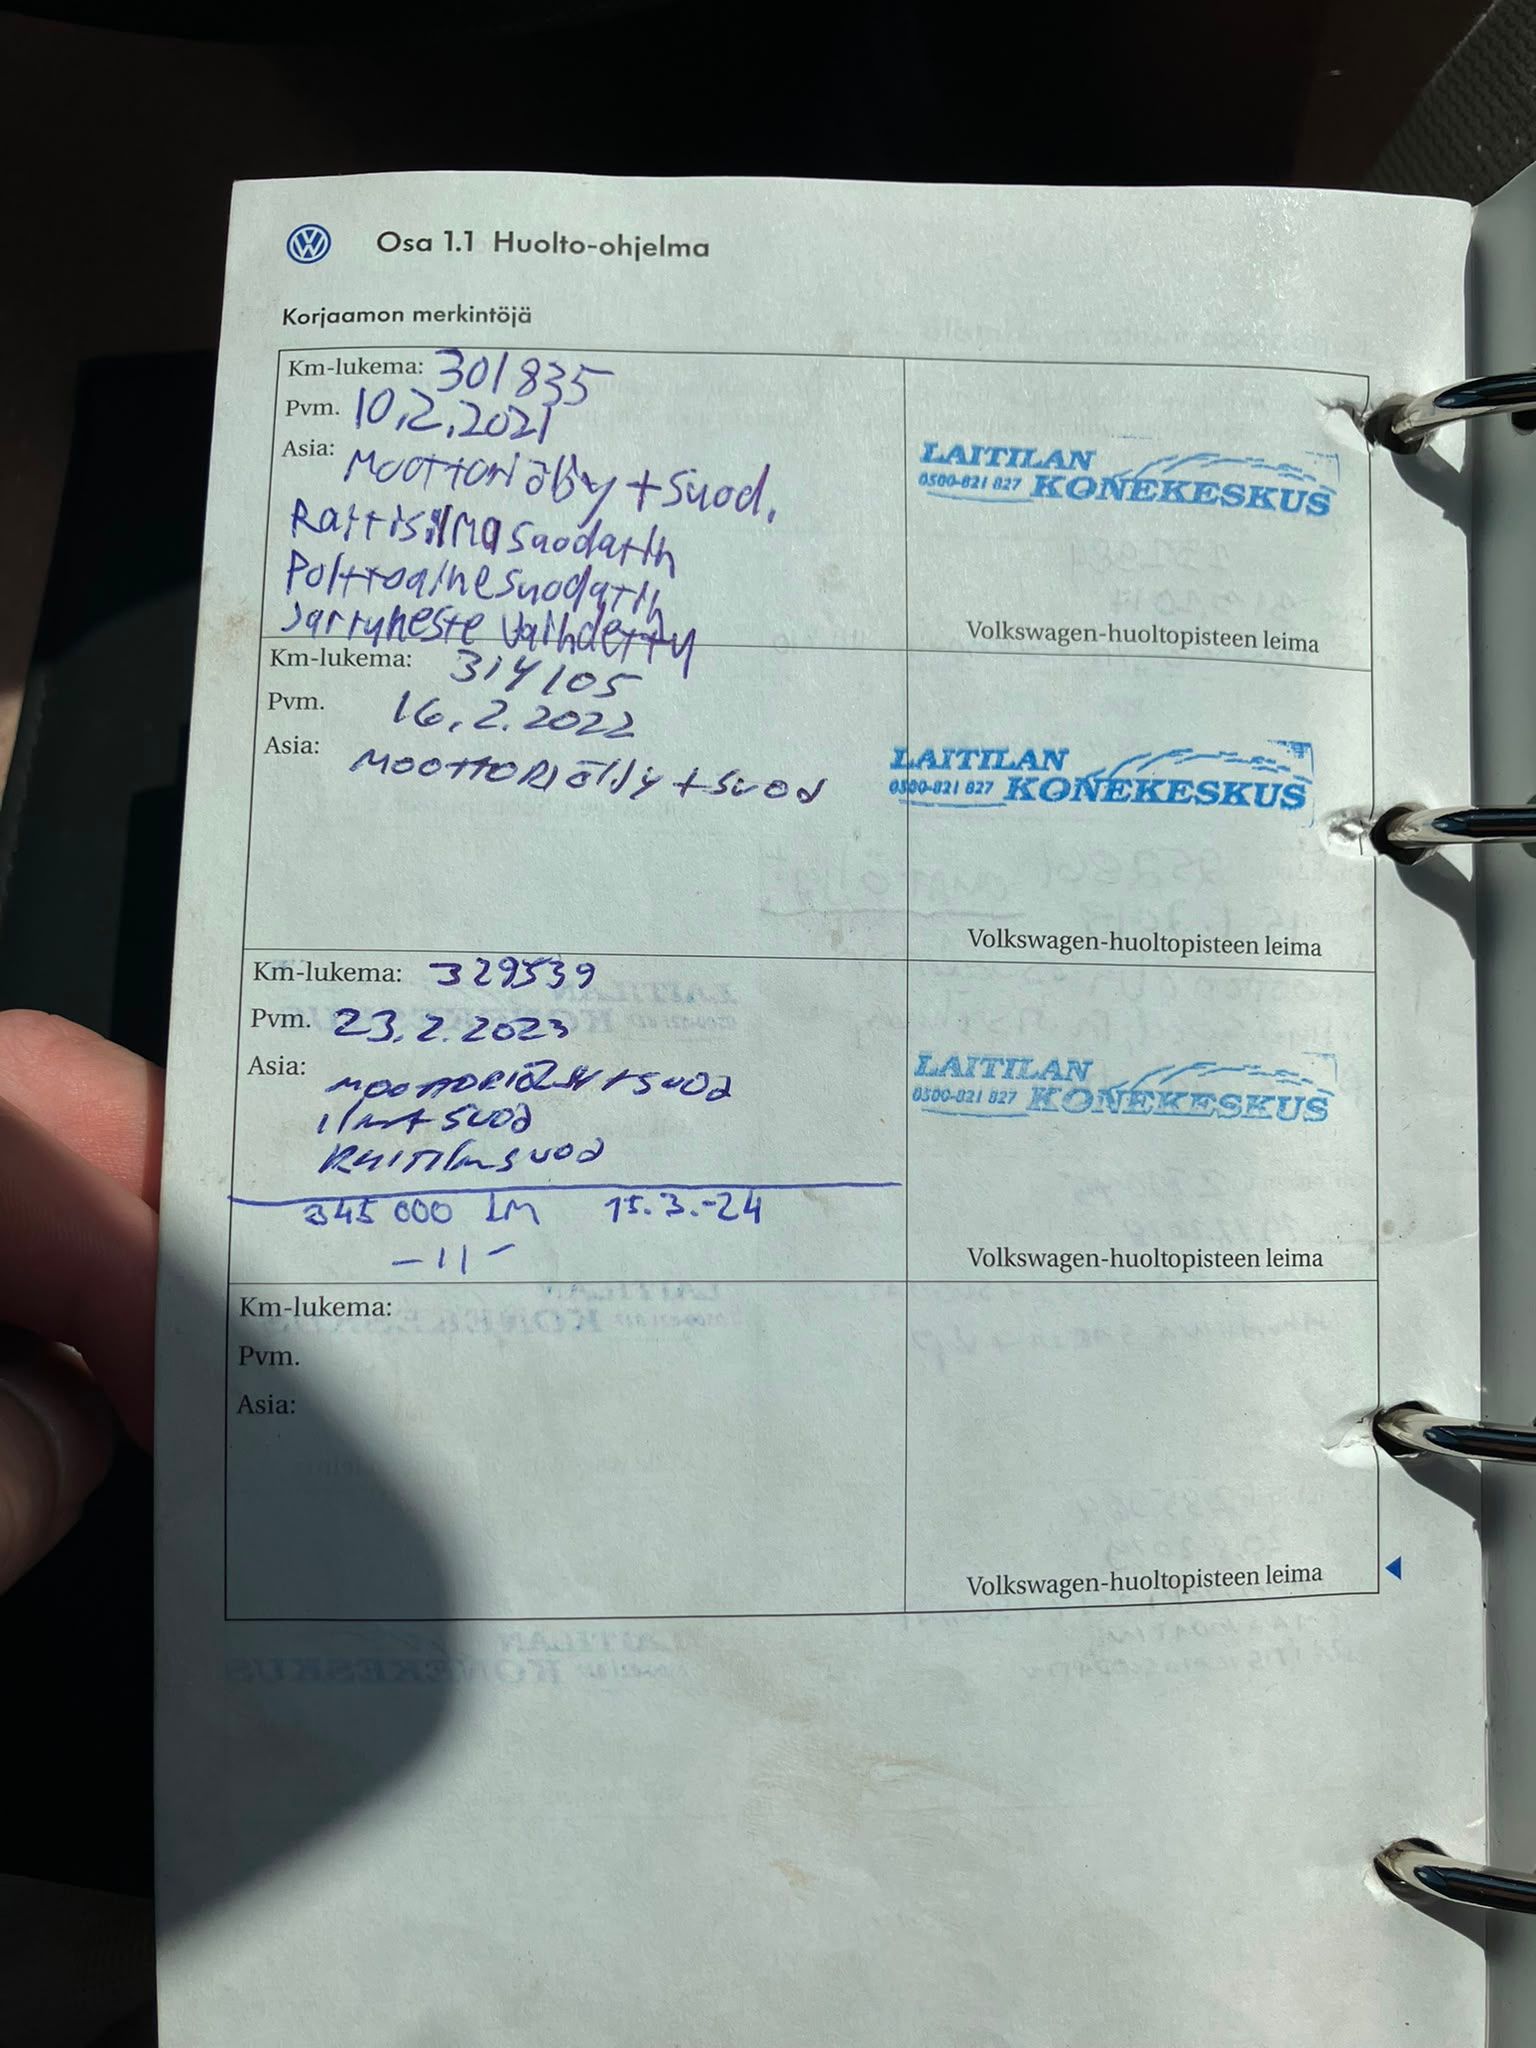 Osa 1.1 Huolto-ohjelma
Korjaamon merkintöjä
Km-lukema: 301835
Pvm. 10.2.2021
Asia: Moottoriöljy + Suod.
Raitisilmasuodatin
Polttoainesuodatin
Jarruneste vaihdettu
LAITILAN
0500-821 827 KONEKESKUS
Volkswagen-huoltopisteen leima
Km-lukema: 314105
Pvm. 16.2.2022
Asia: MOOTTORIÖLJY + SUOD
LAITILAN
0500-821 827 KONEKESKUS
Volkswagen-huoltopisteen leima
Km-lukema: 329539
Pvm. 23.2.2023
Asia: MOOTTORIÖLJY + SUOD
ILMASUOD
RAITILMSUOD
345 000 km 15.3.-24
-11-
LAITILAN
0500-821 827 KONEKESKUS
Volkswagen-huoltopisteen leima
Km-lukema:
Pvm.
Asia:
Volkswagen-huoltopisteen leima